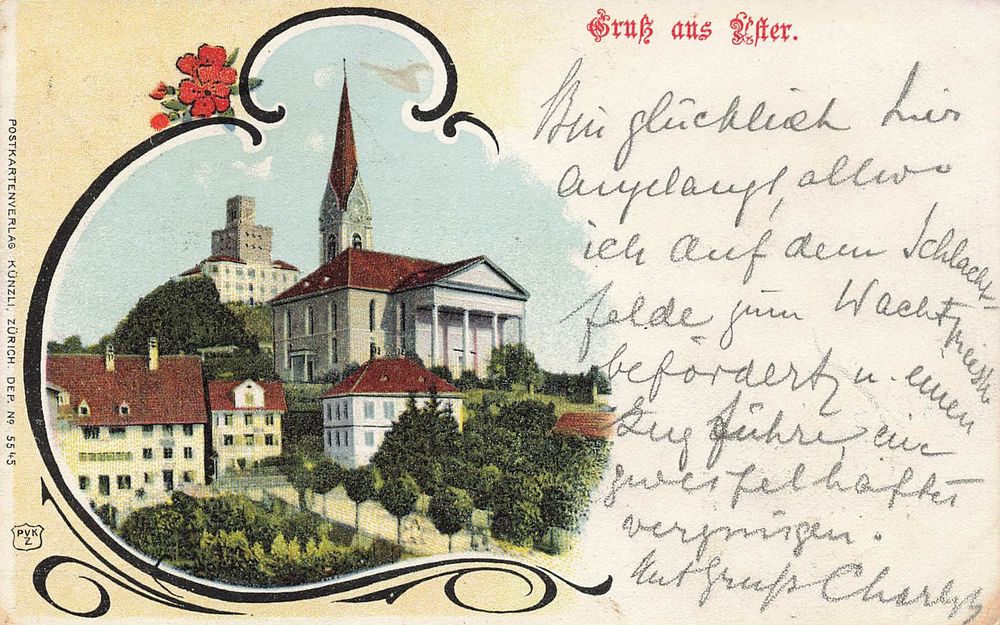 Gruß aus Uster.
Bin glücklich hier
angelangt, allwo
ich auf dem Schlacht-
felde zum Wacht
befördert, u. einen
Zug führe, ein
zweifelhaftes
vergnügen.
Mit Gruß Charles
POSTKARTENVERLAG KÜNZLI, ZÜRICH. DEP. No. 5545
PVK
Z